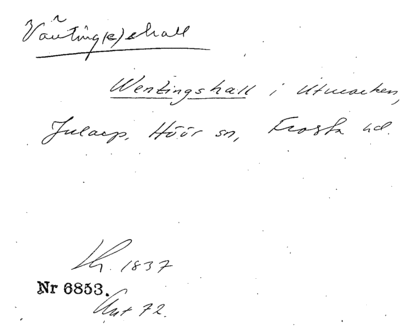 Vänting(s)hall
Wentingshall i Utmarken,
Jularp, Höör sn, Frosta hd.
Kr. 1837
Nr 6853.
Ant 72.